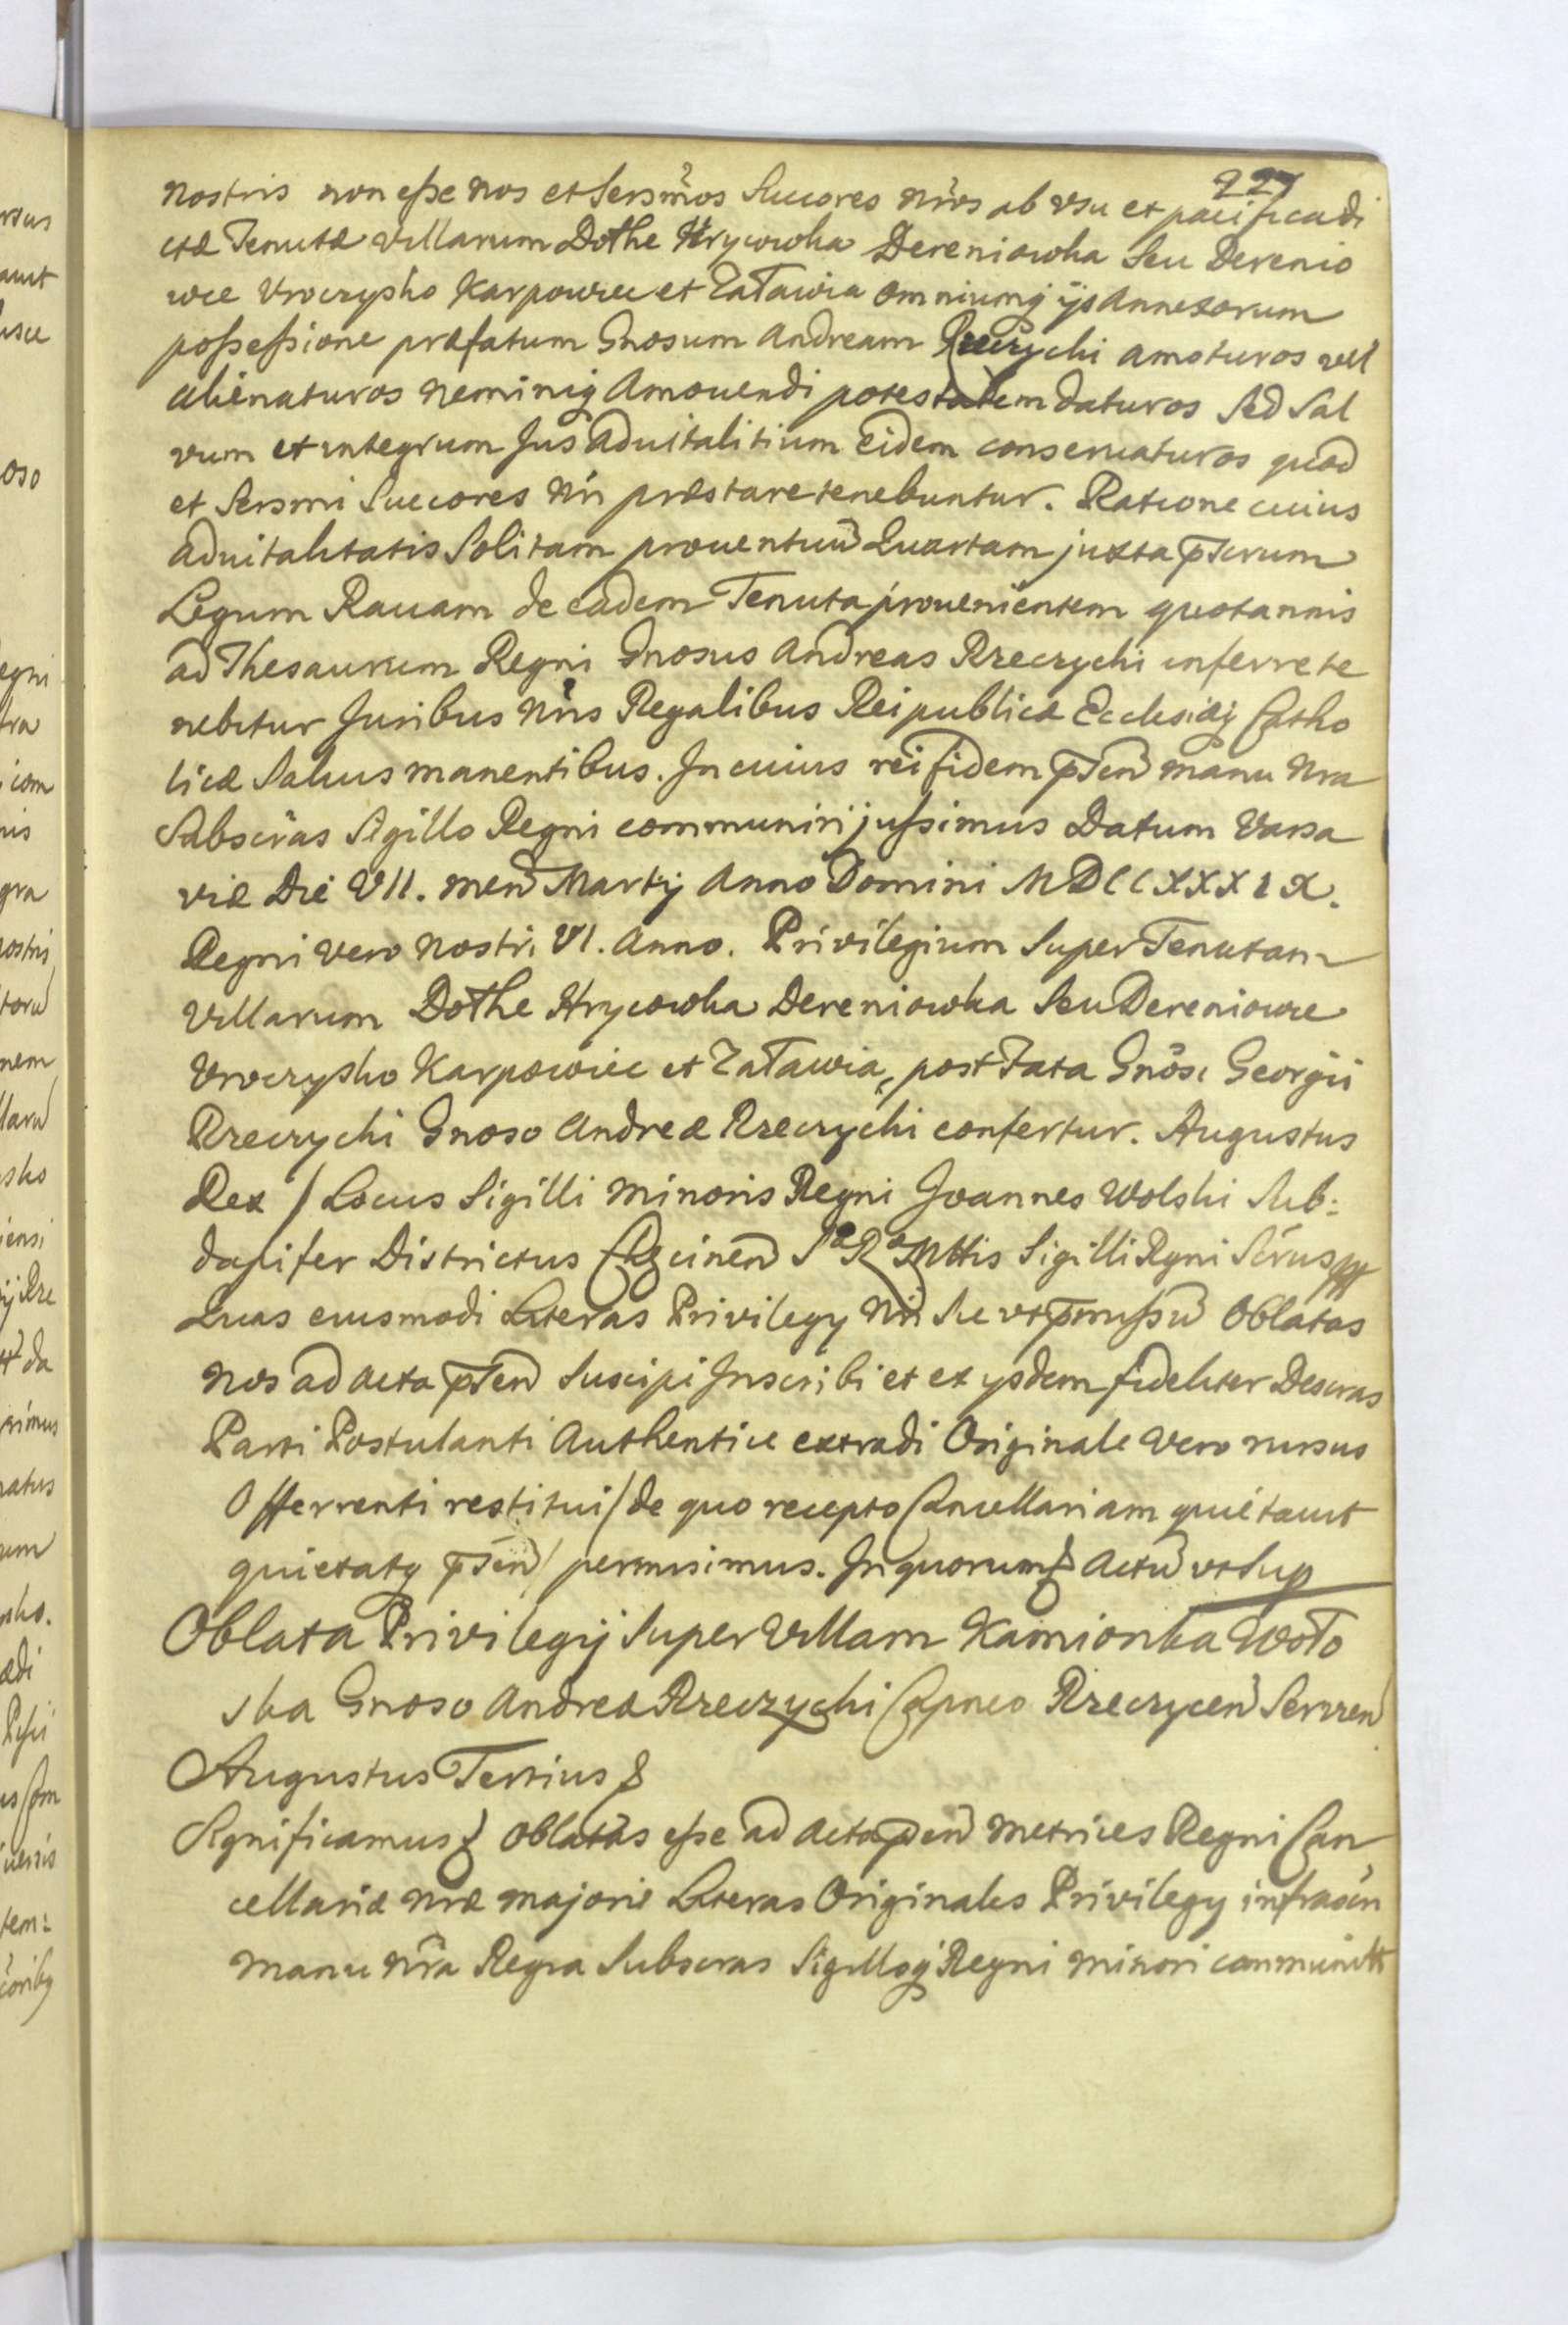 227
nostris non esse nos et Sersm̃os Succores nr̃os ab vsu et pacifica di
ctæ Tenutæ villarum Dołhe Hrycowka Dereniowka seu Derenio
wce Vroczysko Karpowiec et Załawia omniumq ijs annexorum
possessione præfatum Gnosum Andream Rzeczycki amoturos vel
alienaturos neminiq amouendi potestatem daturos sed sal
vum et integrum Jus aduitalitium eidem conseruaturos quod
et Sersmi Succores nr̃i præstare tenebuntur. Ratione cuius
aduitalitatis Solitam prouentuũ Quartam juxta p̃scrum
Legum Rauam de eadem Tenuta prouenientem quotannis
ad Thesaurum Regni Gnosus Andreas Rzeczycki inferre te
nebitur Juribus nr̃is Regalibus Reipublicæ Ecclesiæq Catho
licæ Saluis manentibus. In cuius rei fidem p̃sen̄ manu nra
Subscr̃as Sigillo Regni communiri jussimus Datum Varsa
viæ Die VII. men̄ Martij Anno Domini MDCCXXXIX.
Regni vero nostri VI. Anno. Privilegium super Tenutam
villarum Dołhe Hrycowka Dereniowka seu Dereniowce
Vroczysko Karpowiec et Załawia, post Fata Gnõsi Georgii
Rzeczycki Gnoso Andreæ Rzeczycki confertur. Augustus
Rex / Locus Sigilli minoris Regni Joannes Wolski Sub:
dapifer Districtus Czcinen̄ Sa Ra Mttis Sigilli Rgni Scr̃us pp
Quas eiusmodi Literas Privilegy nr̃i sic vt p̃missũ oblatas
nos ad acta p̃sen̄ suscipi Inscribi et ex ysdem fideliter Descras
Parti Postulanti Authentice extradi Originale vero rursus
Offerrenti restitui / de quo recepto Cancellariam quietauit
quietatq p̃sen̄ / permisimus. In quorum & actũ vt sup
Oblata Privilegij super Villam Kamionka Woło
ska Gnoso Andreæ Rzeczycki Capneo Rzeczycen̄ servien̄
Augustus Tertius &
Significamus & oblatas esse ad acta p̃sen̄ metrices Regni Can
cellariæ nræ majoris Literas Originales Privilegy infrascr̃
manu nr̃a Regia Subscras Sigilloq Regni minori communitt